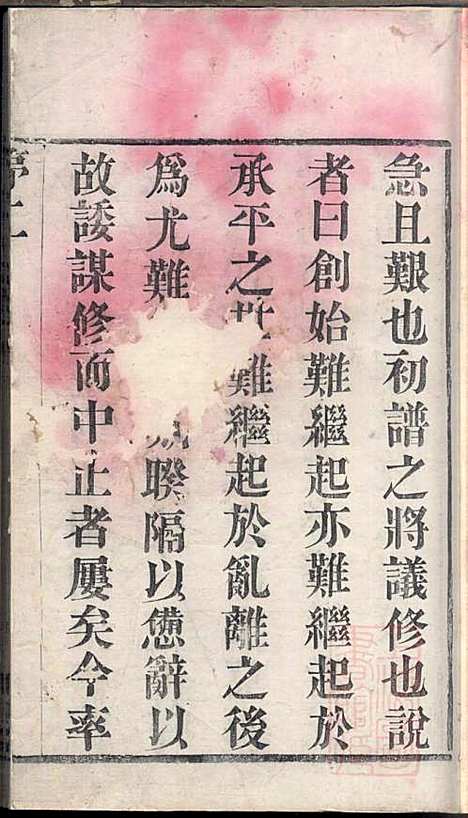 急且艱也初譜之將議修也說
者曰創始難繼起亦難繼起於
承平之世難繼起於亂離之後
爲尤難睽隔以愆辭以
故諉謀修而中止者屢矣今率
序二